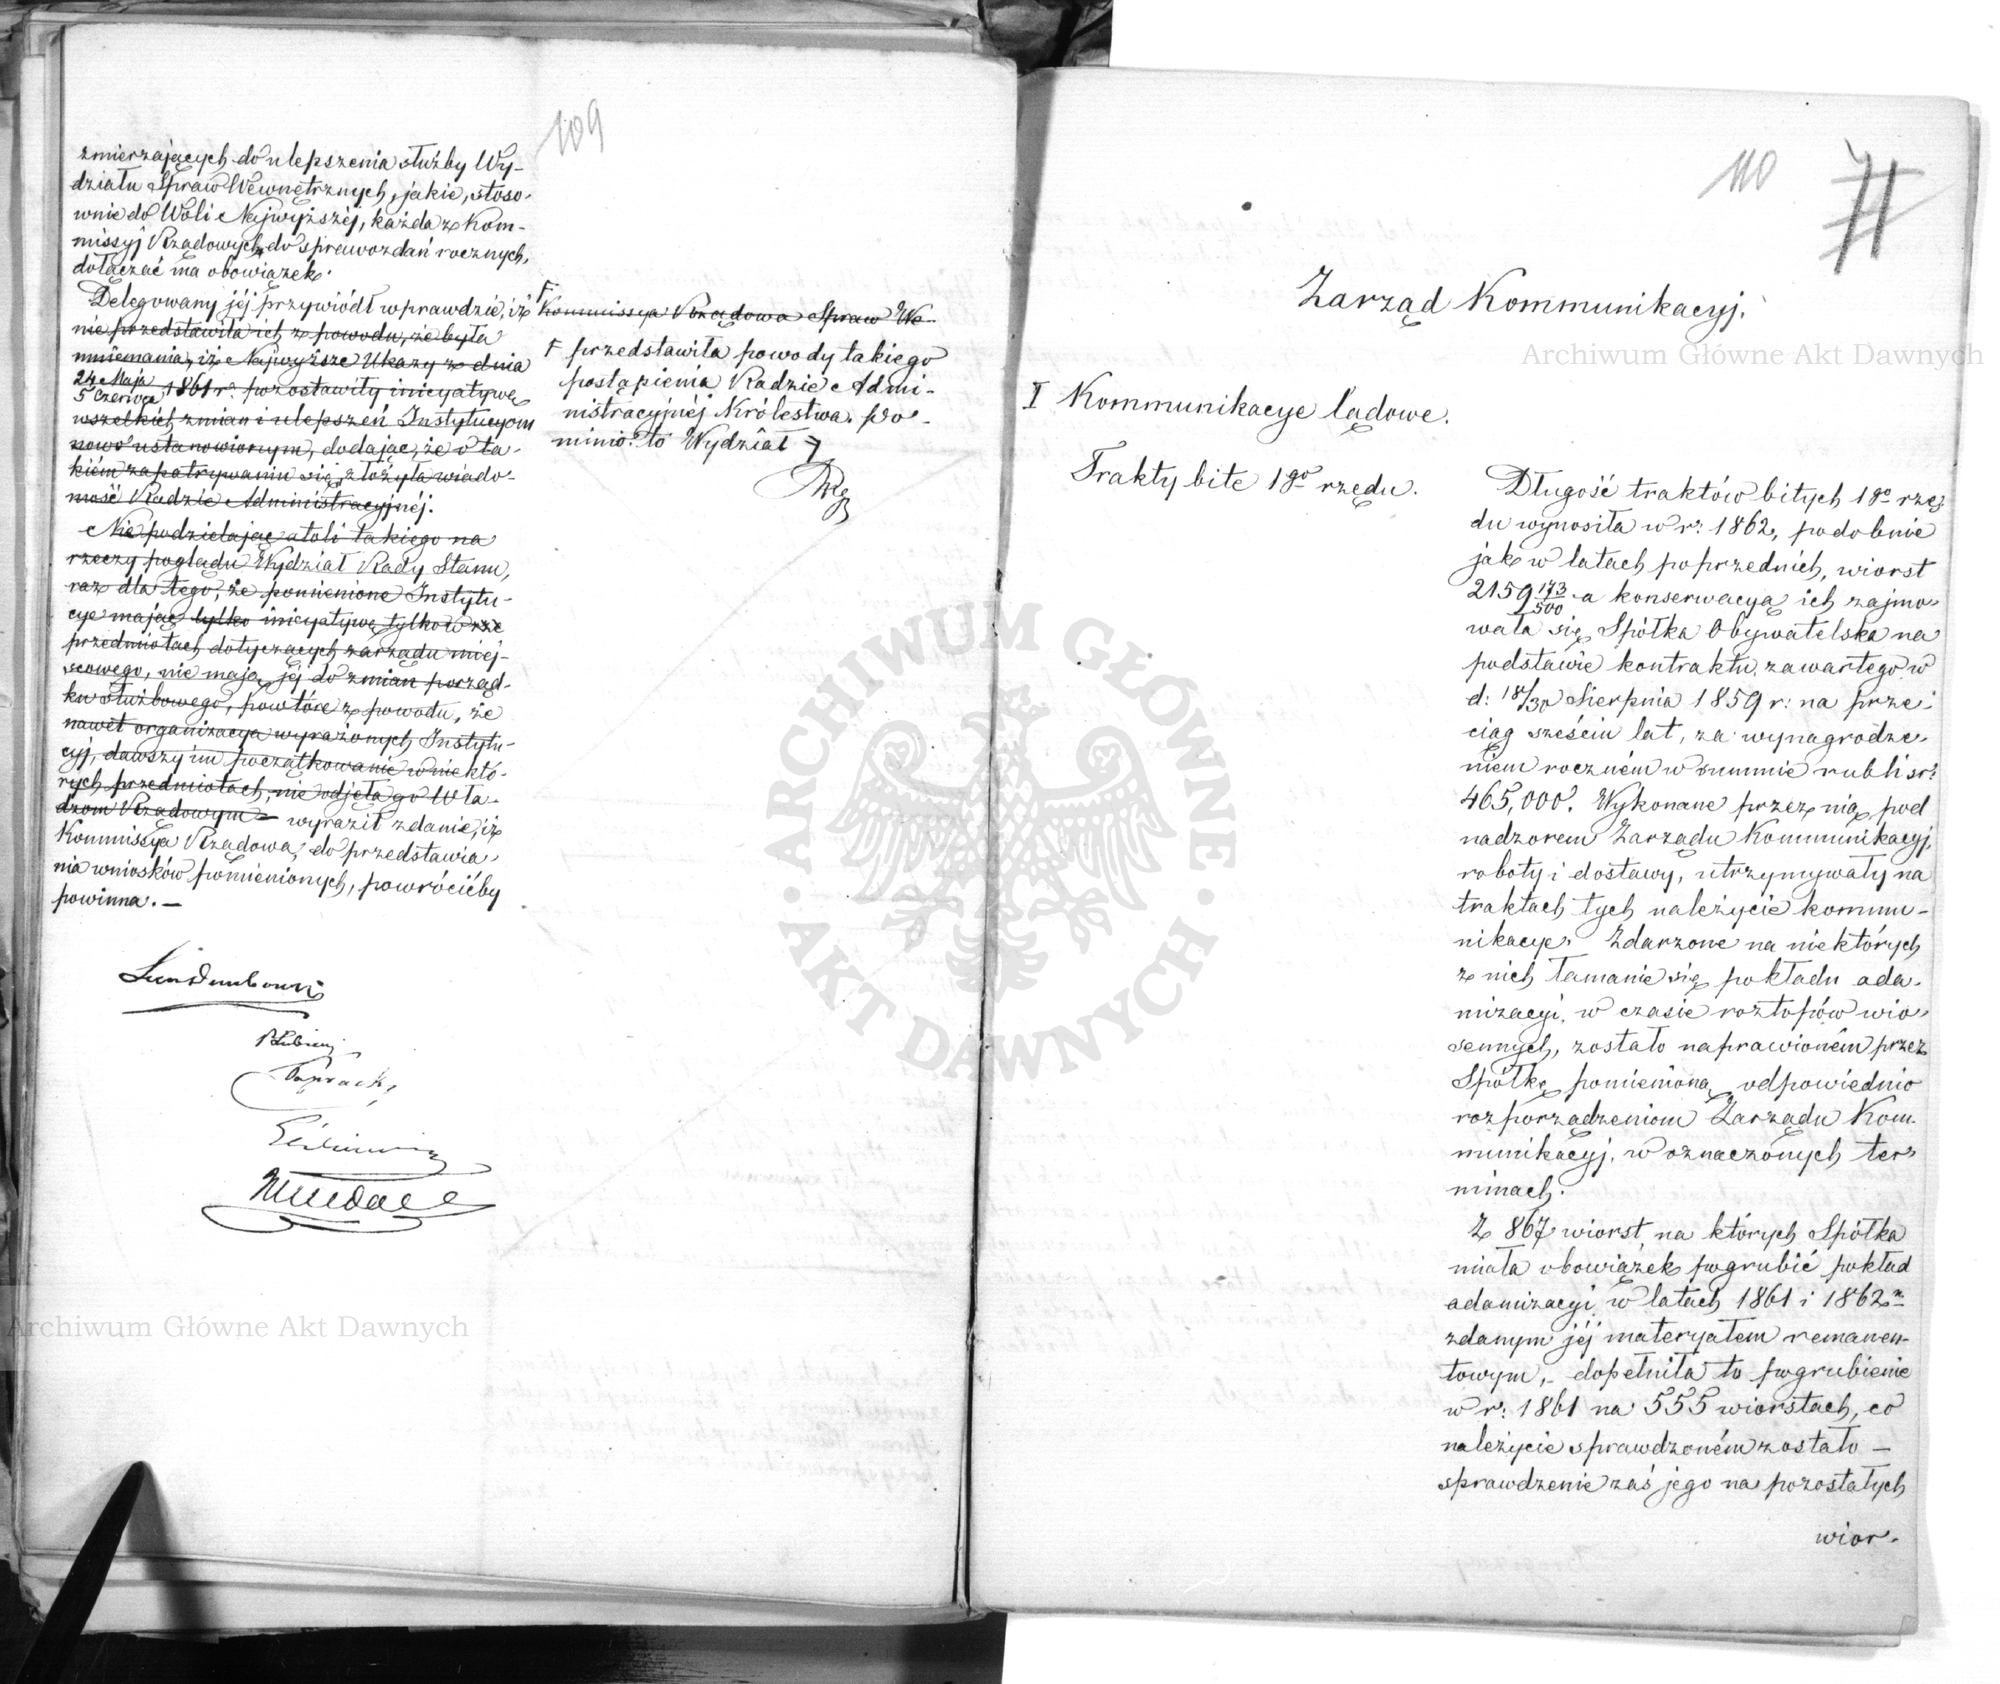 109
zmierzających do ulepszenia służby Wy-
działu Spraw Wewnętrznych, jakie, stoso-
wnie do Woli Najwyższéj, każda z Kom-
missyj Rządowych do sprawozdań rocznych,
dołączać ma obowiązek.
Delegowany jéj przywiódł wprawdzie, iż
nie przedstawiła ich z powodu, że była
mniemania, iż Najwyższe Ukazy z dnia
24 Maja
5 Czerwca 1861 r. pozostawiły inicyatywę
wszelkich zmian i ulepszeń Instytucyom
nowo ustanowionym, dodając, że o ta-
kiém zapatrywaniu się, złożyła wiado-
mość Radzie Administracyjnéj.
Nie podzielając atoli takiego na
rzeczy poglądu Wydział Rady Stanu,
raz dla tego, że pomienione Instytu-
cye mając tylko inicyatywę tylko w
przedmiotach dotyczących zarządu miej-
scowego, nie mają jéj do zmian porząd-
ku służbowego, powtóre z powodu, że
nawet organizacya wyrażonych Instytu-
cyj, dawszy im początkowanie w niektó-
rych przedmiotach, nie odjęła go Wła-
dzom Rządowym – wyraził zdanie, iż
Kommissya Rządowa, do przedstawia-
nia wniosków pomienionych, powrócićby
powinna. —
Kommissya Rządowa Spraw We-
przedstawiła powody takiego
postąpienia Radzie Admi-
nistracyjnéj Królestwa. Po-
mimo to Wydział
110
71
Zarząd Kommunikacyj.
I Kommunikacye lądowe.
Trakty bite 1go rzędu.
Długość traktów bitych 1go rzę-
du wynosiła w r: 1862, podobnie
jak w latach poprzednich, wiorst
2159 173/500 a konserwacyą ich zajmo-
wała się Spółka Obywatelska na
podstawie kontraktu zawartego w
d: 18/30 Sierpnia 1859 r: na prze-
ciąg sześciu lat, za wynagrodze-
niem roczném w summie rubli sr:
465,000. Wykonane przez nią pod
nadzorem Zarządu Kommunikacyj,
roboty i dostawy, utrzymywały na
traktach tych należycie kommu-
nikacye. Zdarzone na niektórych
z nich łamanie się pokładu ada-
mizacyi, w czasie roztopów wio-
sennych, zostało naprawioném przez
Spółkę pomienioną odpowiednio
rozporządzeniom Zarządu Kom-
munikacyj, w oznaczonych ter-
minach.
Z 867 wiorst, na których Spółka
miała obowiązek pogrubić pokład
adamizacyi w latach 1861 i 1862
zdanym jéj materyałem remanen-
towym, – dopełniła to pogrubienie
w r: 1861 na 555 wiorstach, co
należycie sprawdzoném zostało –
sprawdzenie zaś jego na pozostałych
wior-
Archiwum Główne Akt Dawnych
Archiwum Główne Akt Dawnych
ARCHIWUM GŁÓWNE
AKT DAWNYCH